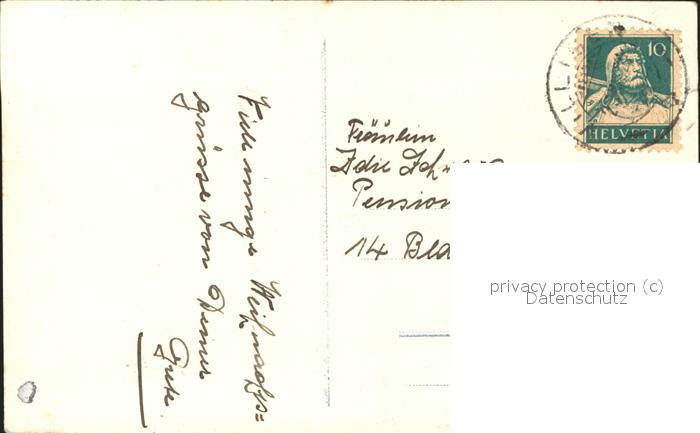 Viele innige Weihnachts=
grüsse von Deiner
Gute.
Fräulein
Pension
14
10
HELVETIA
privacy protection (c)
Datenschutz